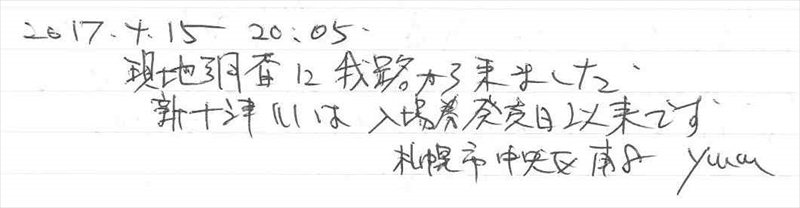 2017.4.15 20:05.
現地調査に我路から来ました.
新十津川は入場券発売日以来です
札幌市中央区南8 yuan